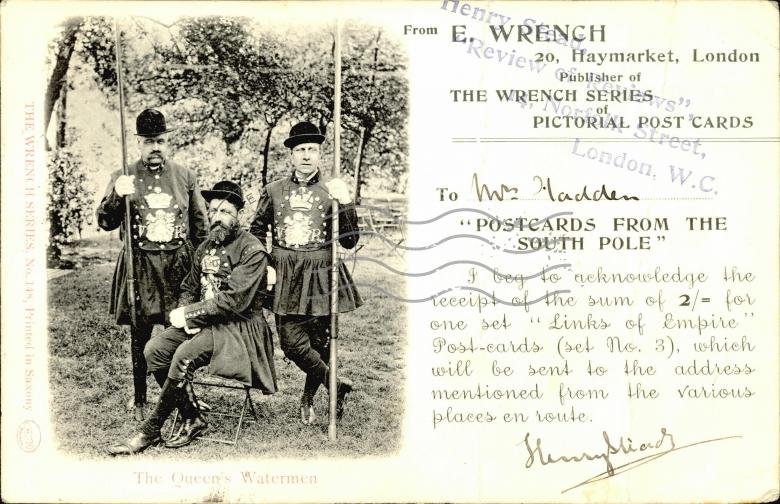 THE WRENCH SERIES, No. 148, Printed in Saxony
The Queen's Watermen
From E. WRENCH
20, Haymarket, London
Publisher of
THE WRENCH SERIES
of
PICTORIAL POST CARDS
Henry Stead,
"Review of Reviews",
14, Norfolk Street,
London, W.C.
To Mrs Hadden
"POSTCARDS FROM THE
SOUTH POLE"
I beg to acknowledge the
receipt of the sum of 2/= for
one set "Links of Empire"
Post-cards (set No. 3), which
will be sent to the address
mentioned from the various
places en route.
Henry Stead